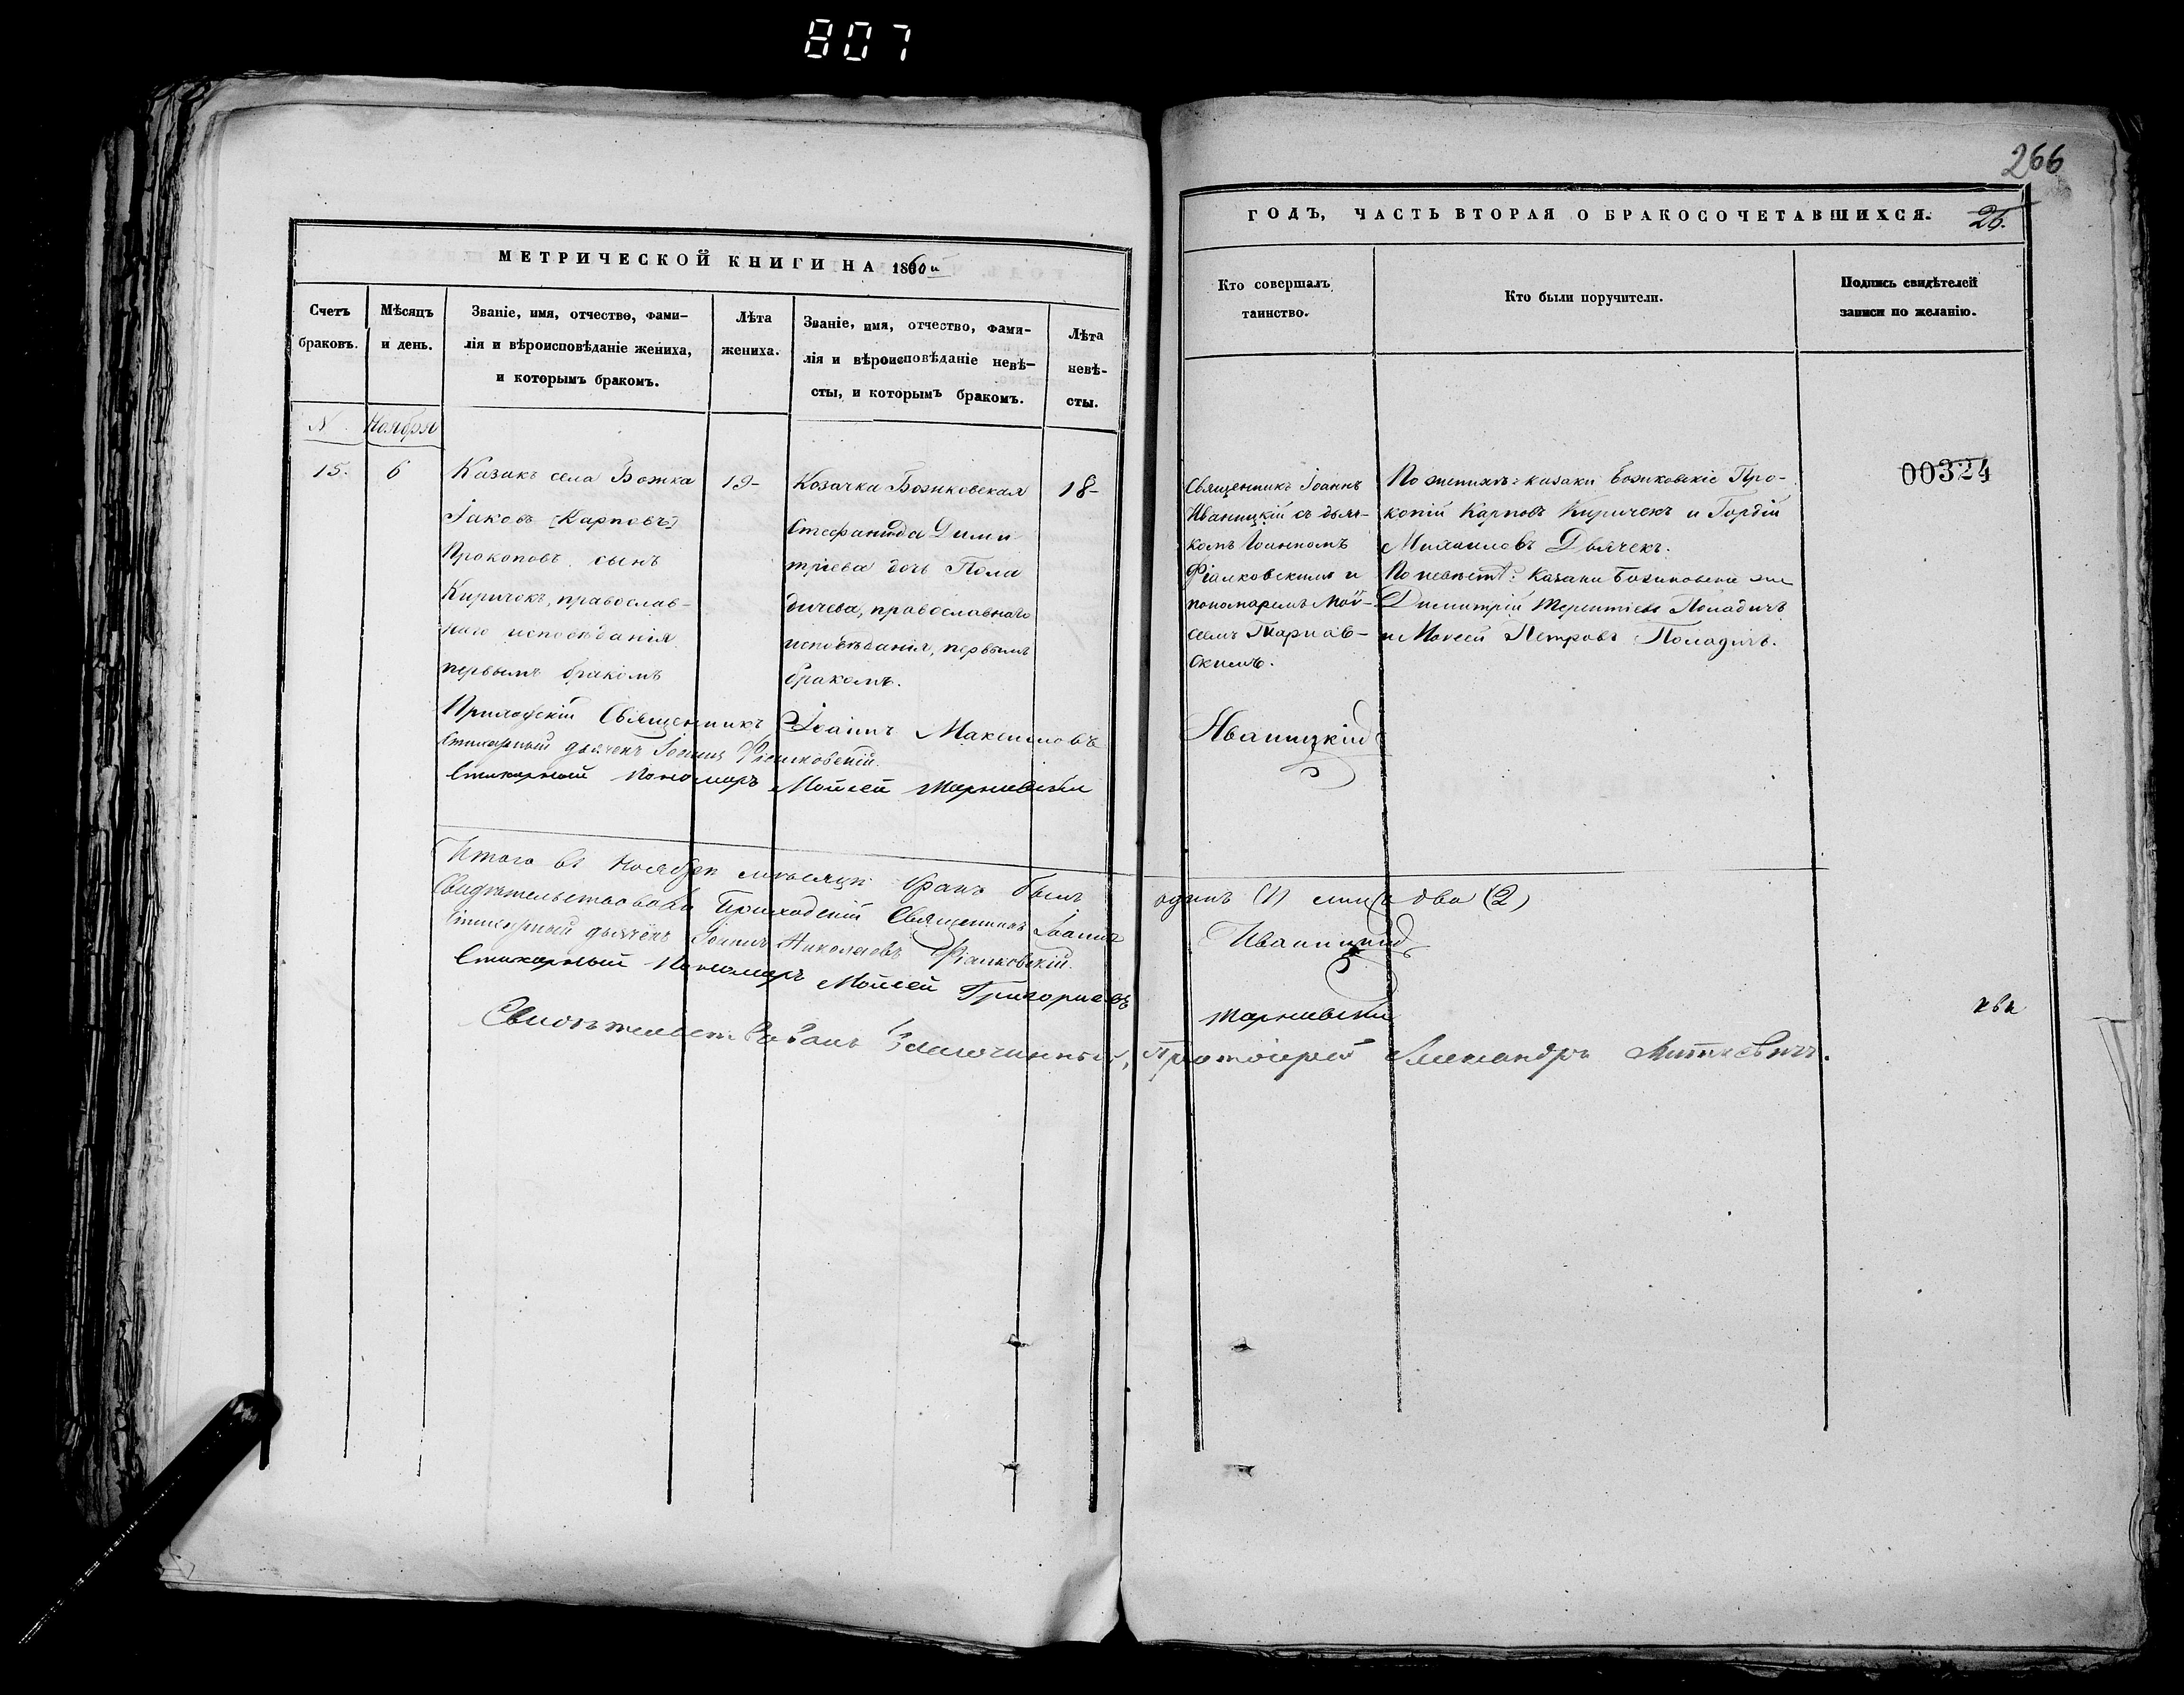 807
266
МЕТРИЧЕСКОЙ КНИГИ НА 1860й
ГОДЪ, ЧАСТЬ ВТОРАЯ О БРАКОСОЧЕТАВШИХСЯ.
26.
Счетъ
браковъ.
Мѣсяцъ
и день.
Званіе, имя, отчество, фами-
лія и вѣроисповѣданіе жениха,
и которымъ бракомъ.
Лѣта
жениха.
Званіе, имя, отчество, фами-
лія и вѣроисповѣданіе невѣ-
сты, и которымъ бракомъ.
Лѣта
невѣ-
сты.
Кто совершалъ
таинство.
Кто были поручители.
Подпись свидѣтелей
записи по желанію.
N
Ноября
15.
6
Казакъ села Божка
Іаковъ [Карповъ]
Прокоповъ сынъ
Киричокъ, православ-
наго исповѣданія
первымъ бракомъ
19-
Козачка Божковская
Стефанида Дими
тріева дочь Пола
дичева, православнаго
исповѣданія, первымъ
бракомъ.
18-
Священникъ Іоаннъ
Иваницкій съ дьяч-
комъ Іоанномъ
Фіалковскимъ и
пономаремъ Мой-
сеемъ Тарнав-
скимъ.
По женихѣ: казаки Божковскіе Про-
копій Карповъ Киричекъ и Гордій
Михаиловъ Дьячекъ.
По невѣстѣ: Казаки Божковскіе же
Димитрій Терентіевъ Поладичъ
и Моисей Петровъ Поладичъ.
00324
Приходскій Священникъ Іоаннъ Максимовъ Иваницкій
Стихарный дьячекъ Іоаннъ Фіалковскій.
Стихарный Пономарь Мойсей Тарнавскій
Итого въ Ноябрѣ мѣсяцѣ бракъ былъ одинъ (1) лицъ два (2)
Свидѣтельствовалъ Приходскій Священникъ Іоаннъ Иваницкій
Стихарный дьячекъ Іоаннъ Николаевъ Фіалковскій.
Стихарный Пономарь Мойсей Григориевъ Тарнавскій
Свидѣтельствовалъ Благочинный, Протоіерей Александръ